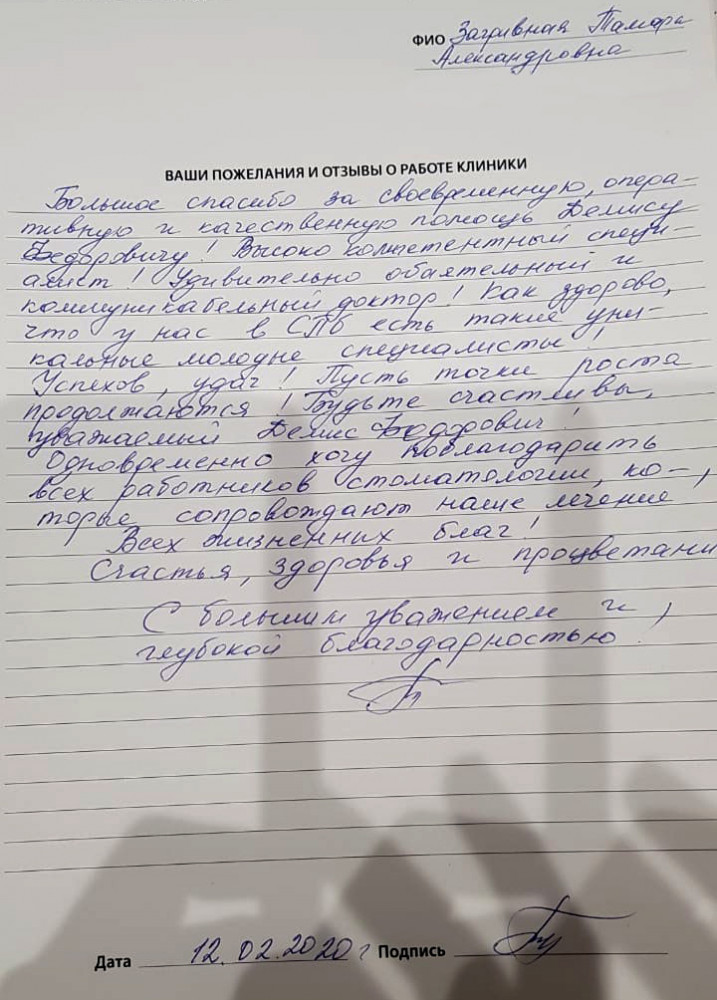 ФИО Загривная Тамара
Александровна
ВАШИ ПОЖЕЛАНИЯ И ОТЗЫВЫ О РАБОТЕ КЛИНИКИ
Большое спасибо за своевременную, опера-
тивную и качественную помощь Денису
Федоровичу! Высоко компетентный специ-
алист! Удивительно обаятельный и
коммуникабельный доктор! Как здорово,
что у нас в СПб есть такие уни-
кальные молодые специалисты!
Успехов, удач! Пусть точки роста
продолжаются! Будьте счастливы,
уважаемый Денис Федорович!
Одновременно хочу поблагодарить
всех работников стоматологии, ко-
торые сопровождают наше лечение,
Всех жизненных благ!
Счастья, здоровья и процветани
С большим уважением и
глубокой благодарностью.
Дата 12.02.2020 г Подпись